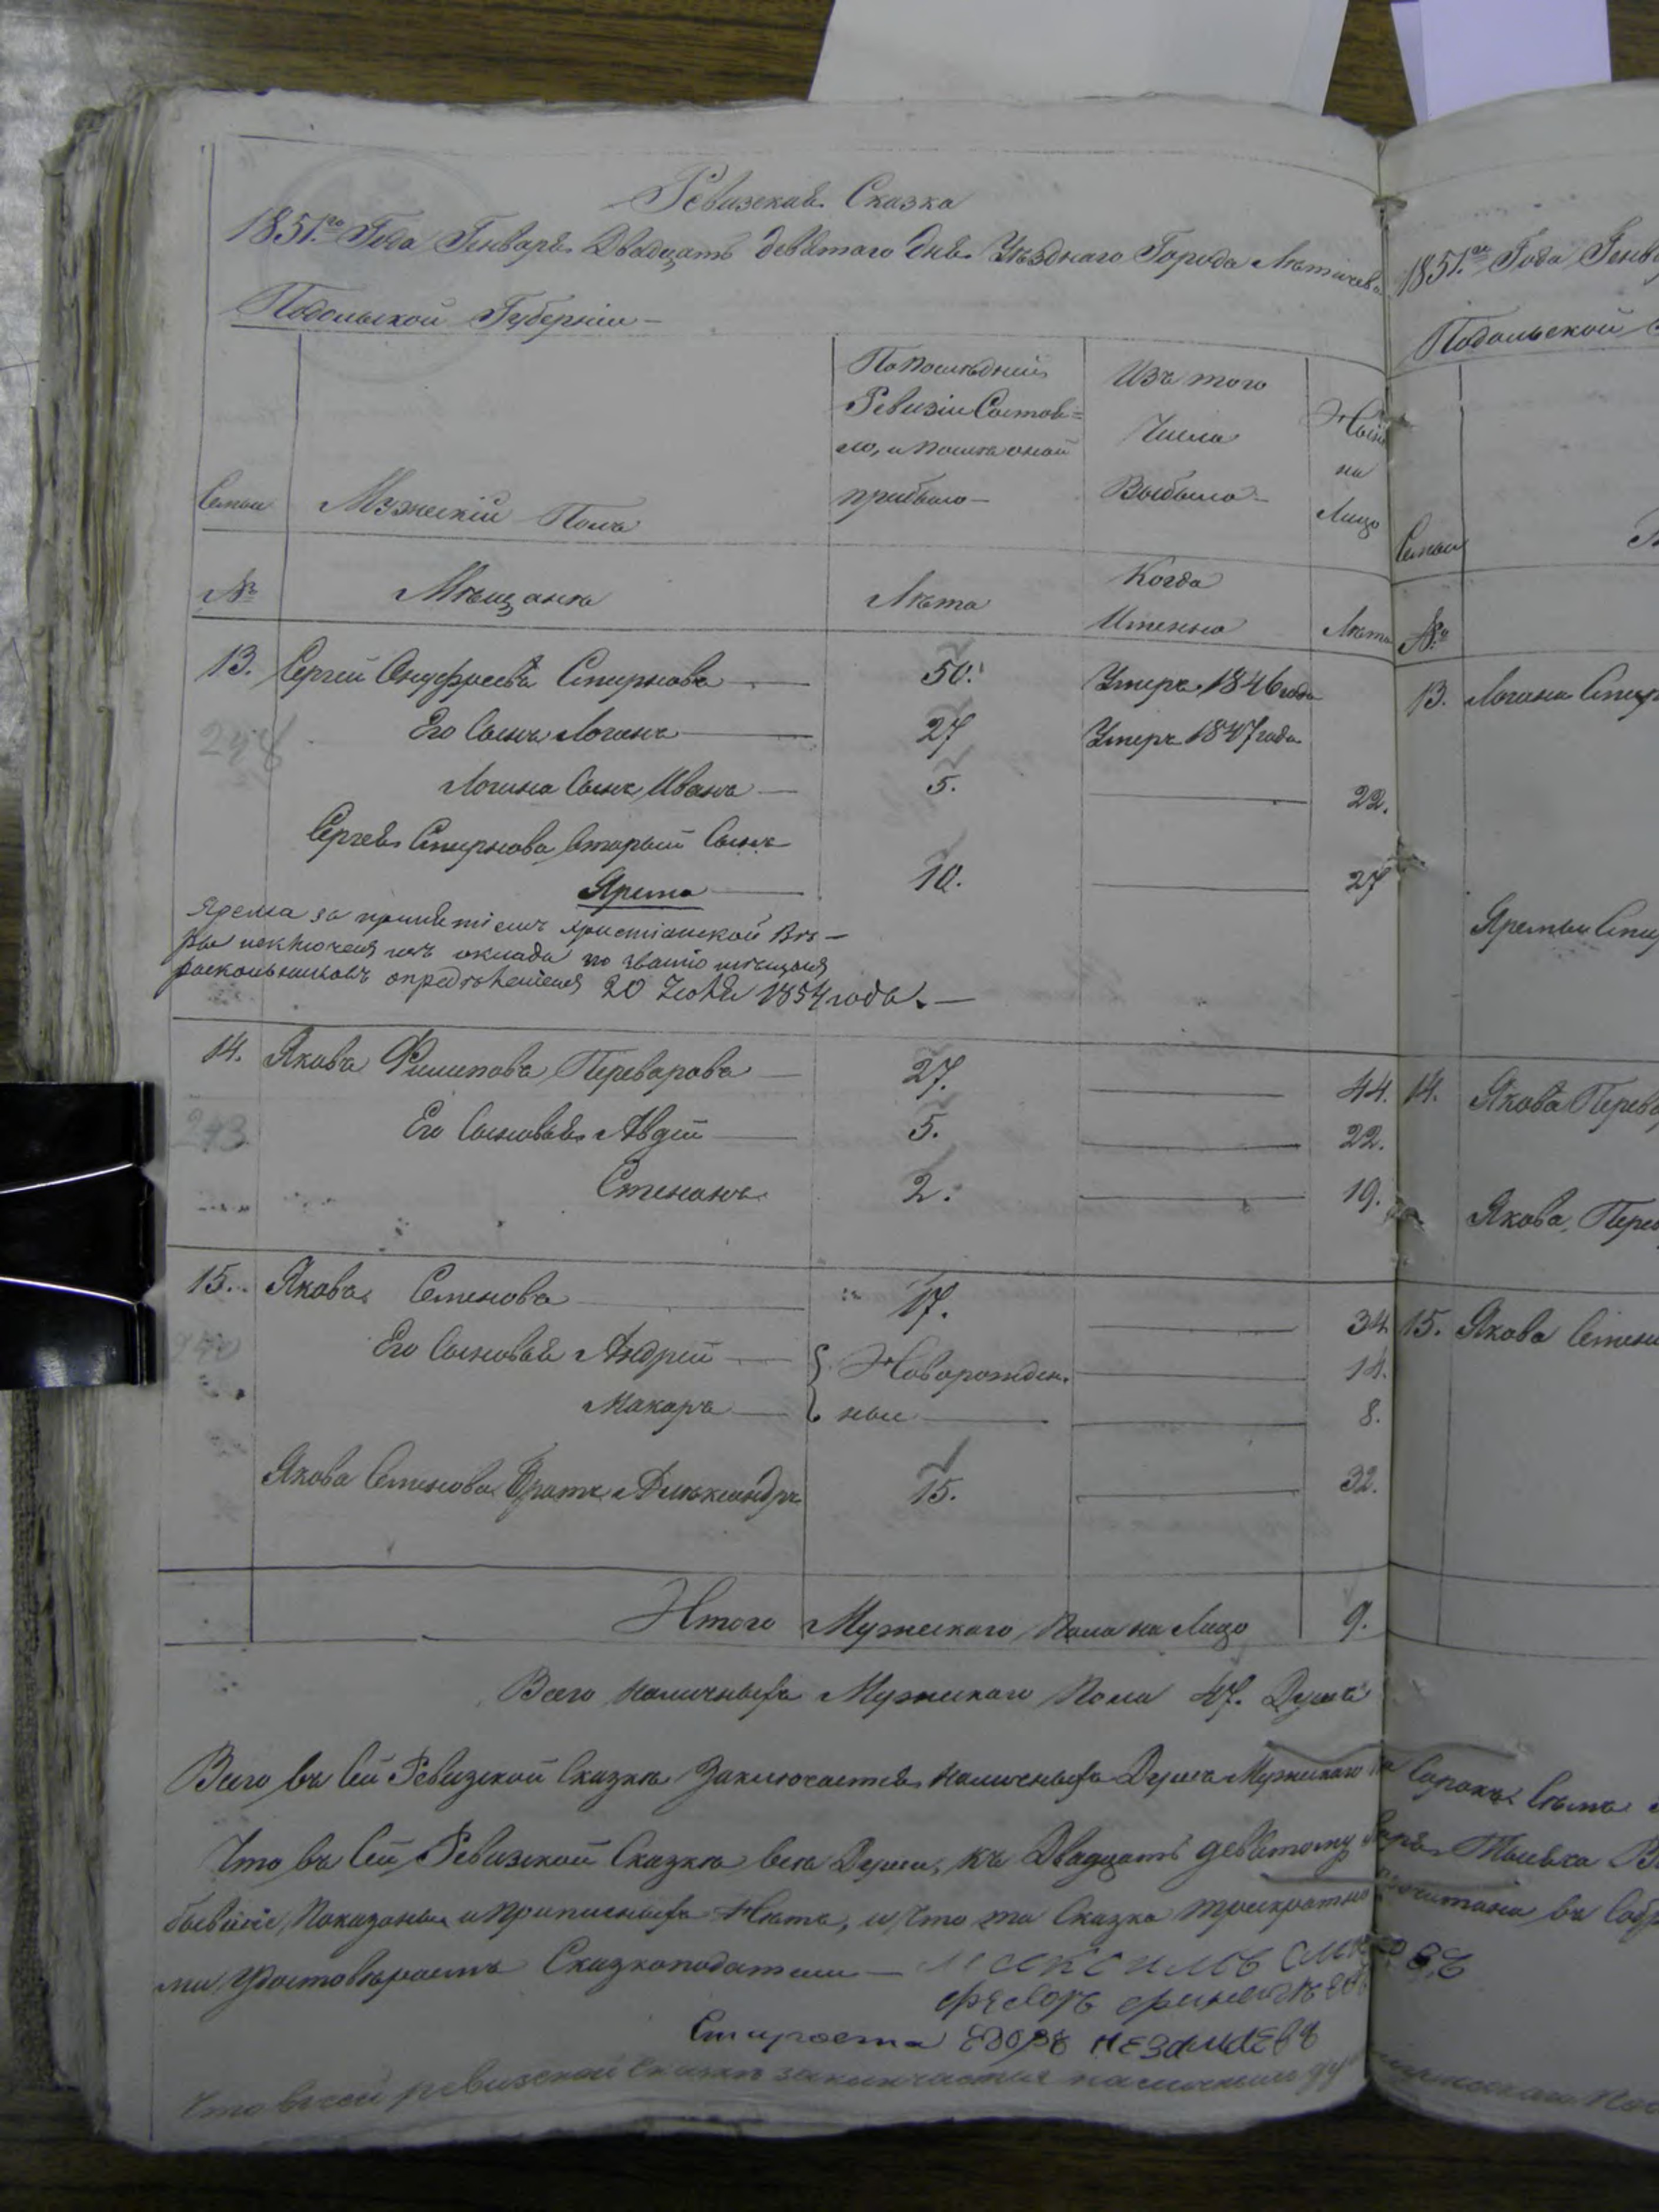 Ревизская Сказка
1851.го Года Генваря Двадцать девятого дня Уѣзднаго Города Лѣтичева
Подольской Губерніи
По последней
Ревизіи Состоя=
ло, и после оной
прибыло
Изъ того
Числа
Выбыло
Ныне
на
Лицо
Семьи
Мужескій Полъ
№
Мѣщанѣ
Лѣта
Когда
Именно
Лѣта
13. Сергей Онуфріевъ Спирновъ 50. Умеръ 1846 года
248 Его Сынъ Логинъ 27 Умеръ 1847 года
Логина Сынъ Иванъ 5. 22.
Сергея Спирнова вторый Сынъ
Ярема 10. 27
Ярема за принятіемъ христіанской Вѣ-
ры исключенъ изъ оклада по званію мѣщанъ
раскольниковъ опредѣленіемъ 20 Іюля 1854 года.
14. Яковъ Филиповъ Переваровъ 27. 44.
243 Его Сыновья Авдей 5. 22.
Степанъ 2. 19.
15. Яковъ Семеновъ 17. 34
Его Сыновья Андрей Новорожден. 14.
Макаръ ные 8.
Якова Семенова Братъ Александръ 15. 32.
Итого Мужескаго Пола на Лицо 9.
Всего наличныхъ Мужескаго Пола 47. Душъ
Всего въ Сей Ревизской Сказкѣ Заключается наличныхъ Душъ Мужескаго
Что въ Сей Ревизской Сказкѣ всѣ Души, къ Двадцать девятому
бывшіе, Показаны и прописныхъ Нѣтъ, и что та Сказка троекратно
ми Удостовѣряемъ Сказкоподатели Максимъ
Федоръ
Староста
Что въ сей ревизской сказкѣ заключается наличными
1851.го Года Генв
Подольской
Семьи
№
13. Логина Спир
Яремы Спир
14. Якова Перева
Якова Пере
15. Якова Семен
Сорокъ Семь
прочитана въ Собр